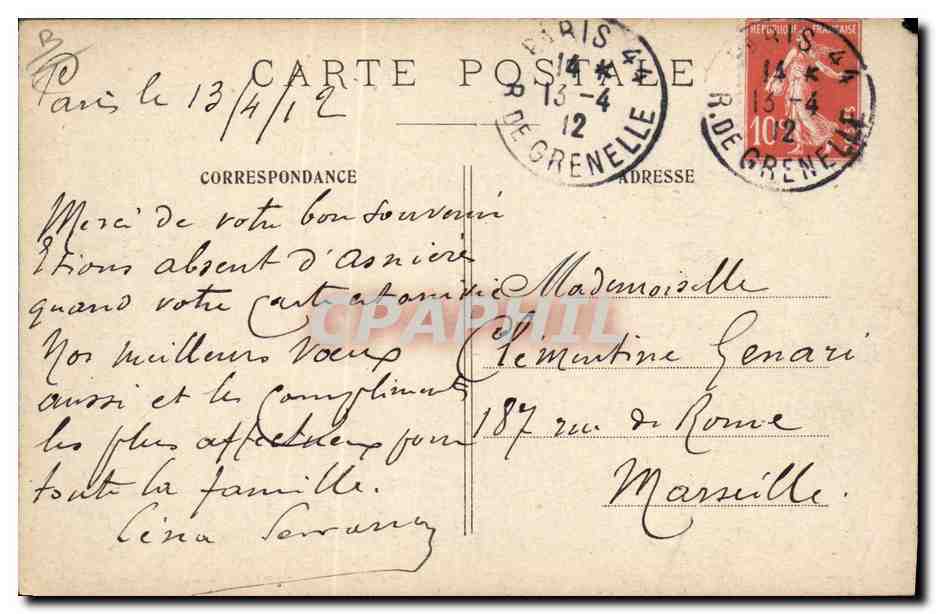 B
Paris le 13/4/12
CARTE POSTALE
PARIS 44
14 *
13-4
12
R. DE GRENELLE
REPUBLIQUE FRANÇAISE
10c
PARIS 44
14 *
13-4
12
R. DE GRENELLE
CORRESPONDANCE
Merci de votre bon souvenir
Etions absent d'Asnière
quand votre carte est arrivée
Nos meilleurs vœux
aussi et les compliments
les plus affectueux pour
toute la famille.
ADRESSE
Mademoiselle
Clémentine Genari
187 rue de Rome
Marseille.
CPAPHIL